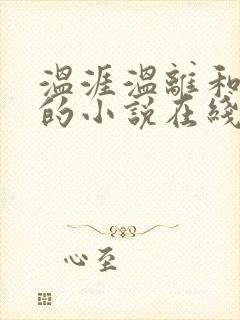 温涯温離和
的小説在綫
心至